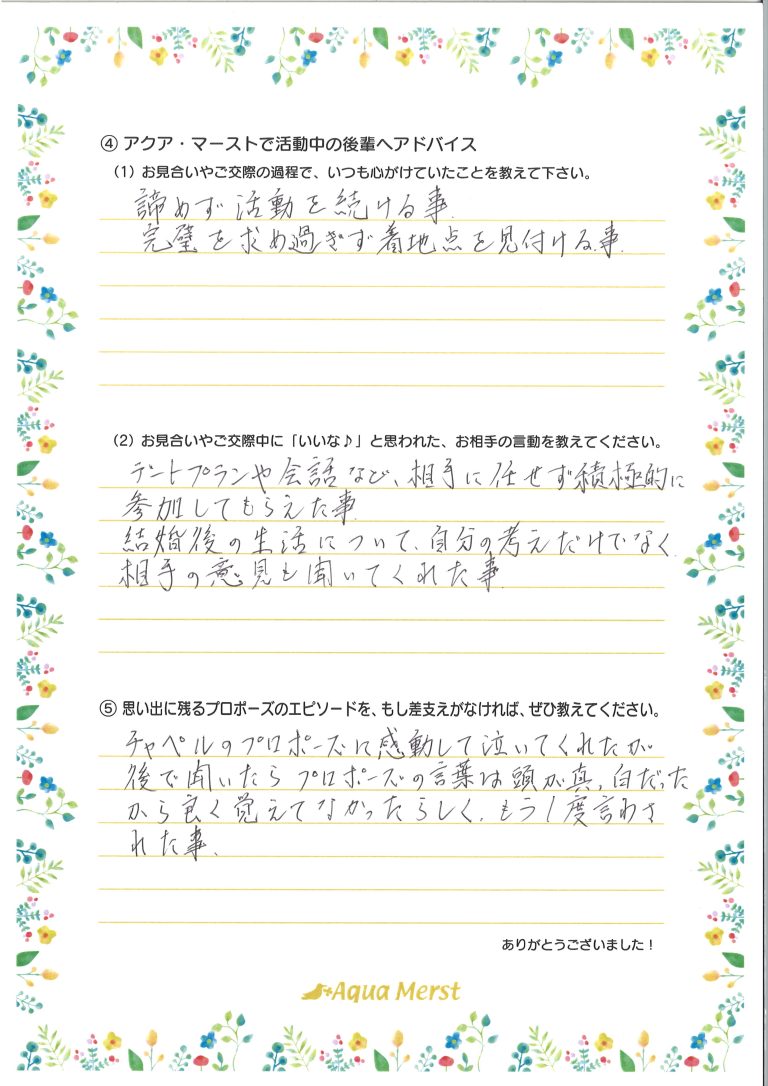 ④ アクア・マーストで活動中の後輩へアドバイス
（1）お見合いやご交際の過程で、いつも心がけていたことを教えて下さい。
諦めず活動を続ける事.
完璧を求め過ぎず着地点を見付ける事.
（2）お見合いやご交際中に「いいな♪」と思われた、お相手の言動を教えてください。
デートプランや会話など、相手に任せず積極的に
参加してもらえた事.
結婚後の生活について、自分の考えだけでなく、
相手の意見も聞いてくれた事.
⑤ 思い出に残るプロポーズのエピソードを、もし差支えがなければ、ぜひ教えてください。
チャペルのプロポーズに感動して泣いてくれたが
後で聞いたらプロポーズの言葉は頭が真っ白だった
から良く覚えてなかったらしく、もう1度言わさ
れた事.
ありがとうございました！
Aqua Merst